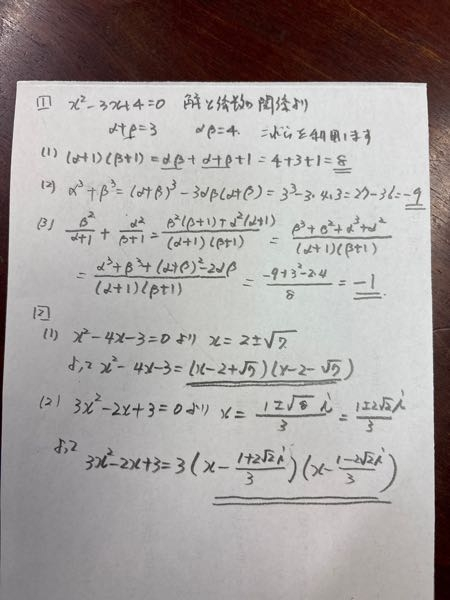 1 x²-3x+4=0 解と係数の関係より
α+β=3 αβ=4. これらを利用します
(1) (α+1)(β+1)=αβ+α+β+1=4+3+1=8
(2) α³+β³=(α+β)³-3αβ(α+β)=3³-3・4・3=27-36=-9
(3) β²/(α+1)+α²/(β+1)=(β²(β+1)+α²(α+1))/((α+1)(β+1))=(β³+β²+α³+α²)/((α+1)(β+1))
=(α³+β³+(α+β)²-2αβ)/((α+1)(β+1))=(-9+3²-2・4)/8=-1
2
(1) x²-4x-3=0より x=2±√7
よって x²-4x-3=(x-2+√7)(x-2-√7)
(2) 3x²-2x+3=0より x=(1±√8 i)/3=(1±2√2i)/3
よって
3x²-2x+3=3(x-(1+2√2i)/3)(x-(1-2√2i)/3)